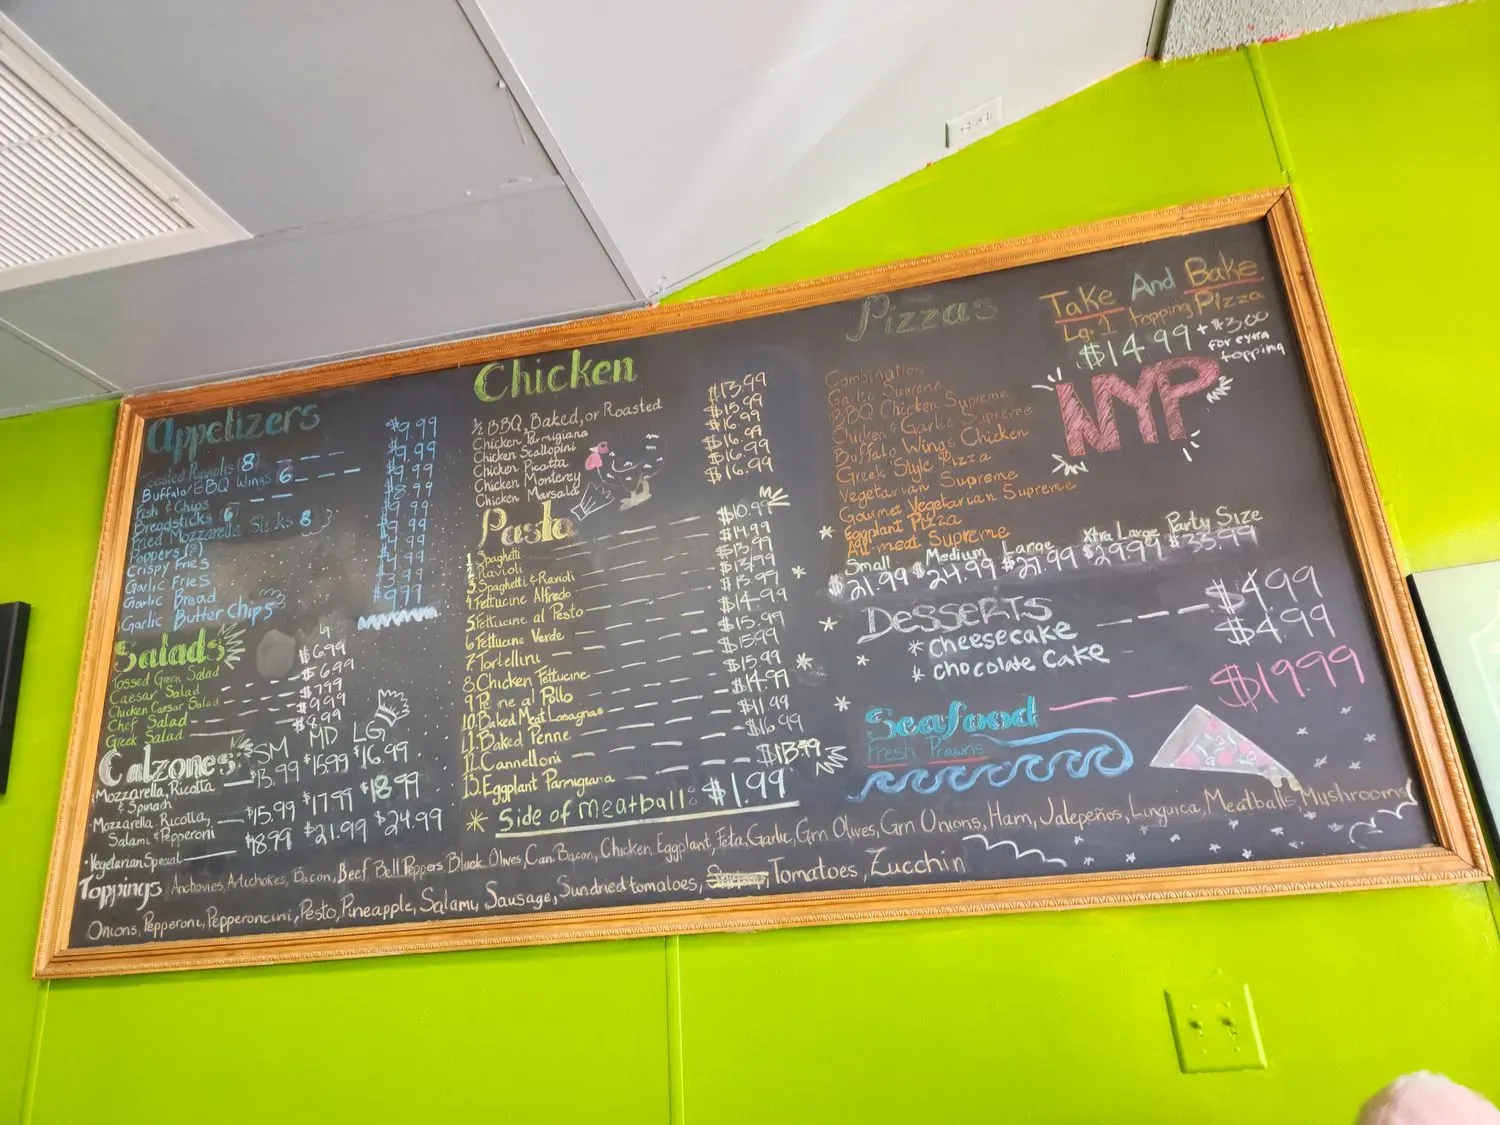 Appetizers
Toasted Raviolis (8)
Buffalo/BBQ Wings 6
Fish & Chips
Breadsticks 6
Fried Mozzarella Sticks 8
Poppers
Crispy Fries
Garlic Fries
Garlic Bread
Garlic Butter Chips
$9.99
9.99
9.99
8.99
Salads
Lg.
Tossed Green Salad $6.99
Caesar Salad $6.99
Chicken Caesar Salad $7.99
Chef Salad $9.99
Greek Salad $8.99
Calzones SM MD LG
Mozzarella, Ricotta & Spinach $13.99 $15.99 $16.99
Mozzarella, Ricotta, Salami & Pepperoni $15.99 $17.99 $18.99
Vegetarian Special $18.99 $21.99 $24.99
Chicken
½ BBQ, Baked, or Roasted $13.99
Chicken Parmigiana $15.99
Chicken Scallopini $16.99
Chicken Picatta $16.99
Chicken Monterey $16.99
Chicken Marsala $16.99
Pasta
1. Spaghetti $10.99
2. Ravioli $14.99
3. Spaghetti & Ravioli $13.99
4. Fettucine Alfredo $13.99
5. Fettucine al Pesto $13.99
6. Fettucine Verde $14.99
7. Tortellini $15.99
8. Chicken Fettucine $15.99
9. Penne al Pollo $15.99
10. Baked Meat Lasagnas $14.99
11. Baked Penne $11.99
12. Cannelloni $16.99
13. Eggplant Parmigiana $13.99
* Side of meatball: $1.99
Pizzas
Combination
Garlic Supreme
BBQ Chicken Supreme
Chicken & Garlic Supreme
Buffalo Wings Chicken
Greek Style Pizza
Vegetarian Supreme
Gourmet Vegetarian Supreme
Eggplant Pizza
All-meat Supreme
Small Medium Large Xtra Large Party Size
$21.99 $24.99 $27.99 $29.99 $33.99
Take And Bake
Lg. 1 topping Pizza
$14.99 + $3.00 for extra topping
NYP
Desserts
* cheesecake $4.99
* chocolate cake $4.99
Seafood $19.99
Fresh Prawns
Toppings Anchovies, Artichokes, Bacon, Beef Bell Peppers Black Olives, Can. Bacon, Chicken, Eggplant, Feta, Garlic, Grn Olives, Grn Onions, Ham, Jalepeños, Linguica, Meatballs, Mushrooms
Onions, Pepperoni, Pepperoncini, Pesto, Pineapple, Salami, Sausage, Sundried tomatoes, Tomatoes, Zucchin